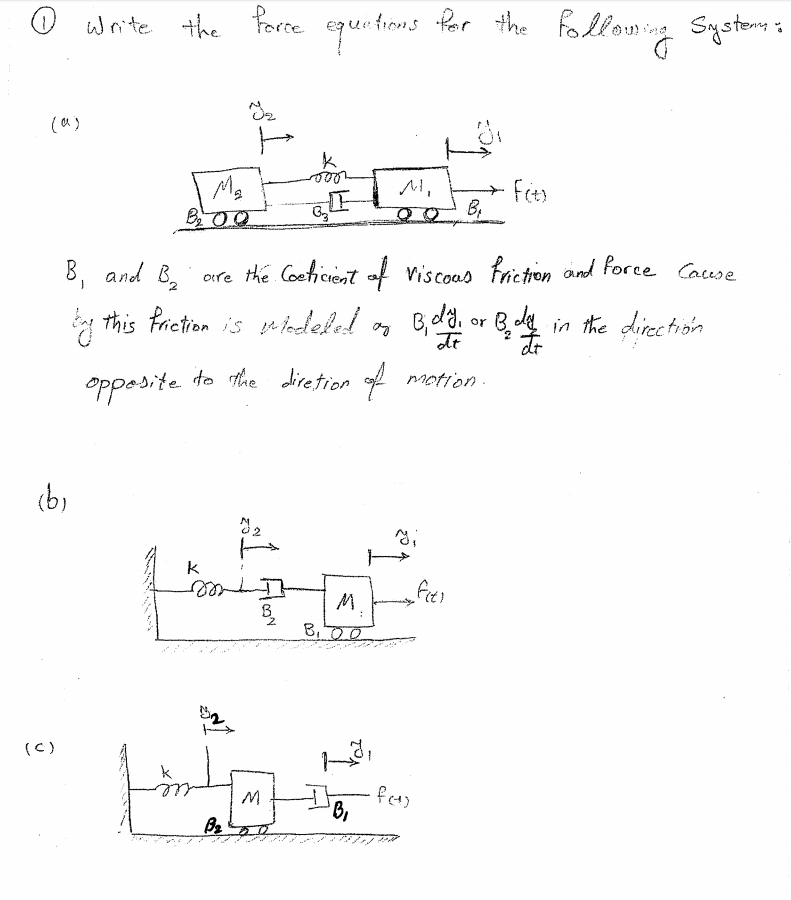 ① Write the force equations for the following System:
(a)
y₂
y₁
k
M₂
M₁
f(t)
B₂
B₃
B₁
B₁ and B₂ are the Coeficient of Viscous friction and force Cause
by this friction is Modeled as B₁ dy₁/dt or B₂ dy₂/dt in the direction
opposite to the diretion of motion.
(b)
y₂
y₁
k
B₂
M
f(t)
B₁
(c)
y₂
y₁
k
M
f(t)
B₁
B₂